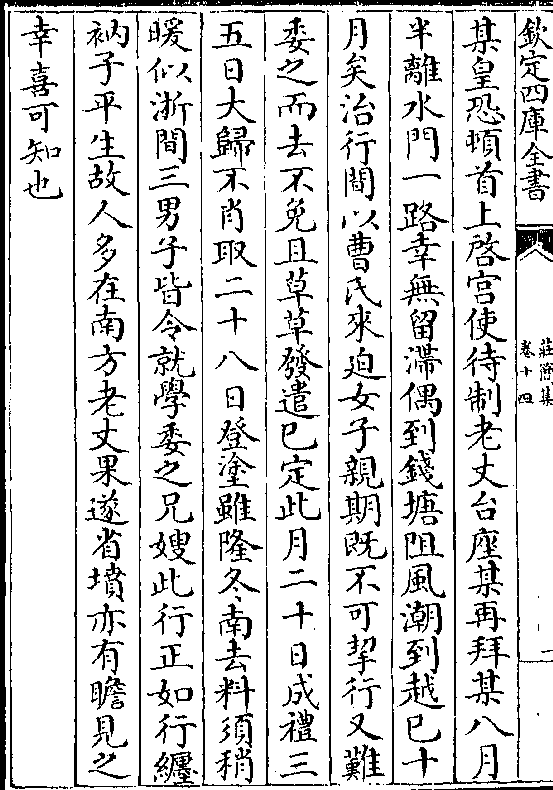 欽定四庫全書
莊簡集
卷十四
某皇恐頓首上啓宫使待制老丈台座某再拜某八月
半離水門一路幸無留滯偶到錢塘阻風潮到越已十
月矣治行間以曹氏來迫女子親期既不可挈行又難
委之而去不免且草草發遣已定此月二十日成禮三
五日大歸不肖取二十八日登塗雖隆冬南去料須稍
暖似浙間三男子皆令就學委之兄嫂此行正如行纏
衲子平生故人多在南方老丈果遂省墳亦有瞻見之
幸喜可知也